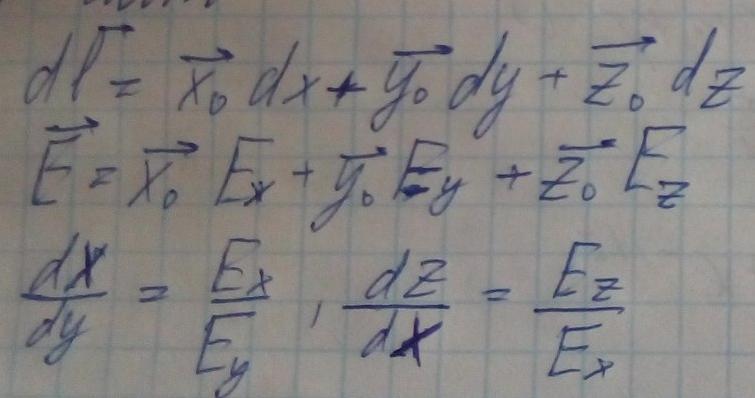 dl⃗ = x⃗₀ dx + y⃗₀ dy + z⃗₀ dz
E⃗ = x⃗₀ Eₓ + y⃗₀ E_y + z⃗₀ E_z
dx/dy = Eₓ/E_y , dz/dx = E_z/Eₓ